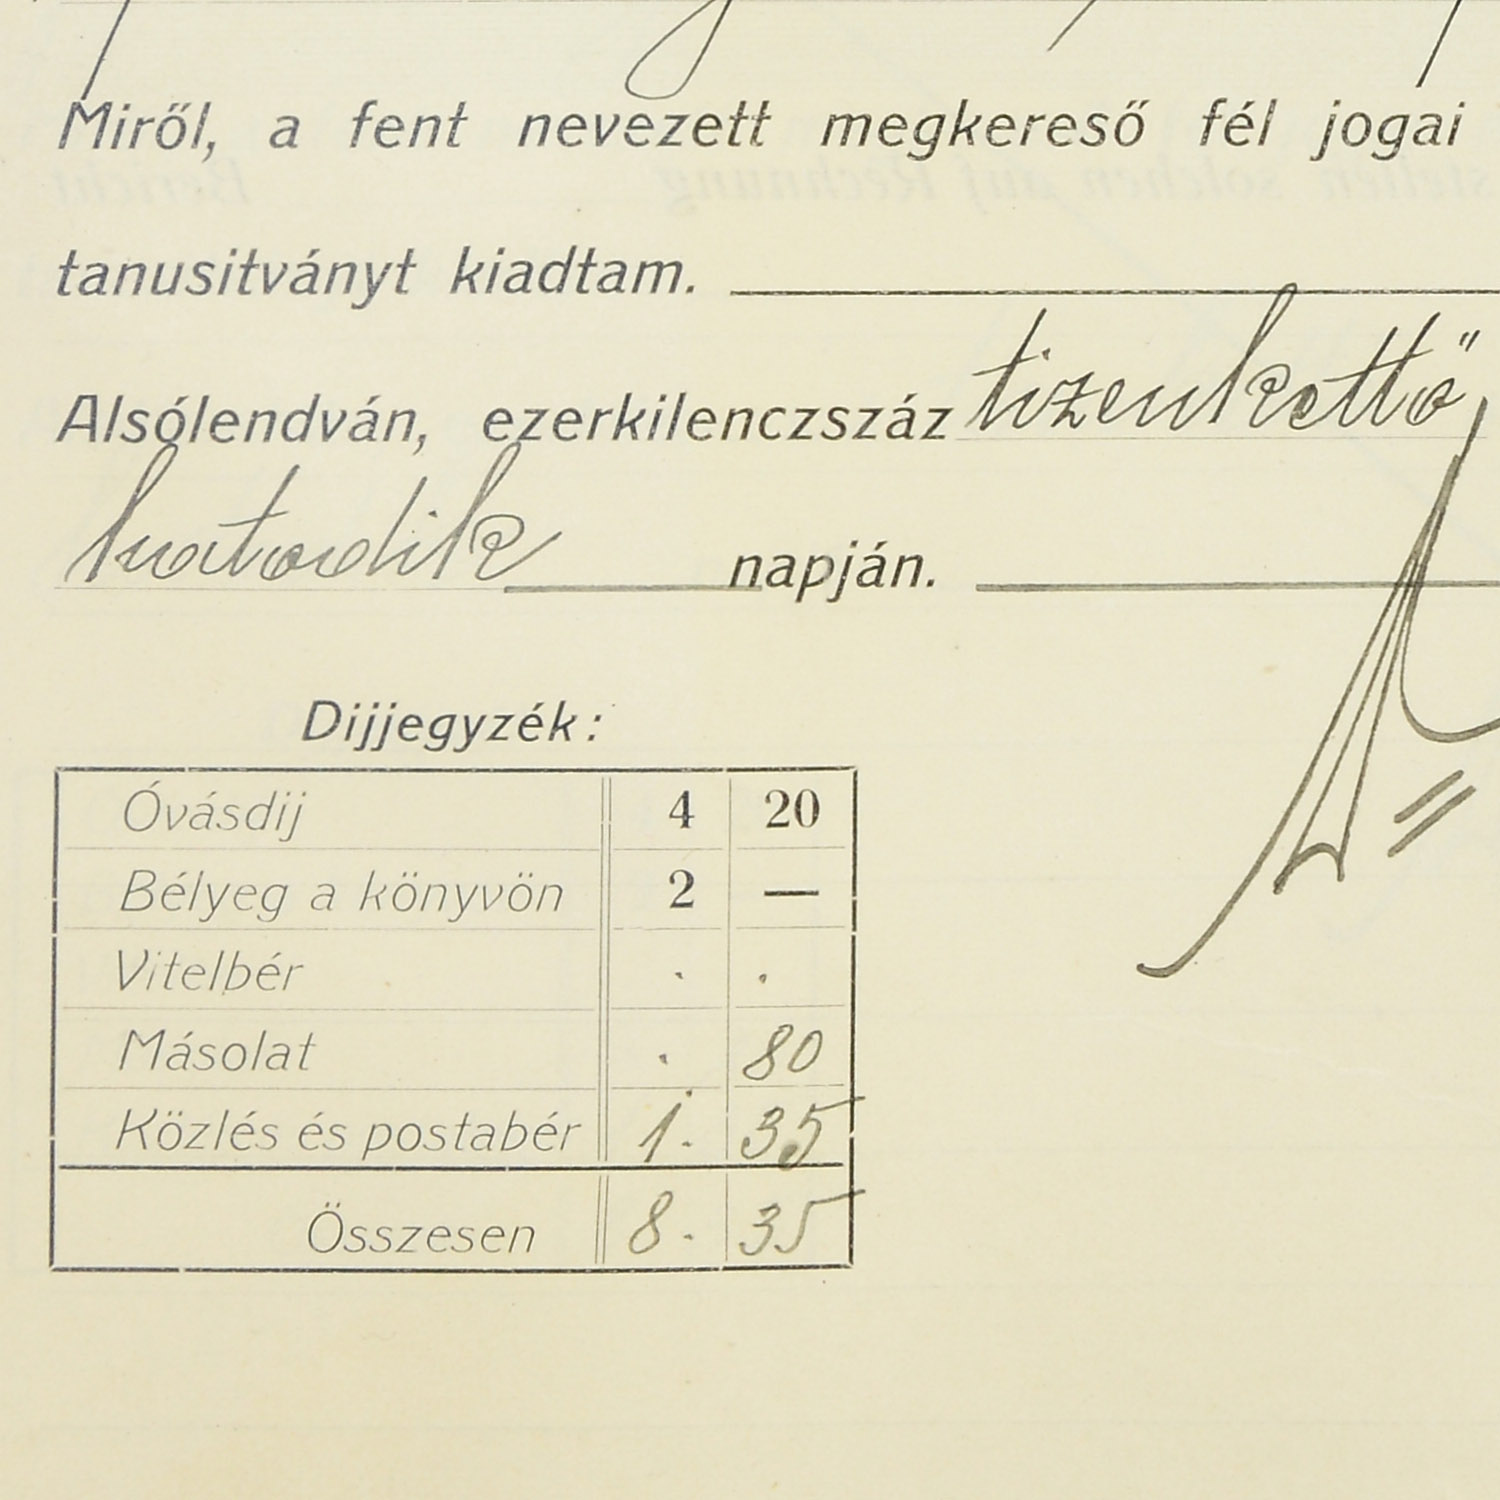 Miről, a fent nevezett megkereső fél jogai
tanusitványt kiadtam.
Alsólendván, ezerkilenczszáz tizenkettő
hatodik napján.
Dijjegyzék:
Óvásdij 4 20
Bélyeg a könyvön 2 —
Vitelbér . .
Másolat . 80
Közlés és postabér 1. 35
Összesen 8. 35